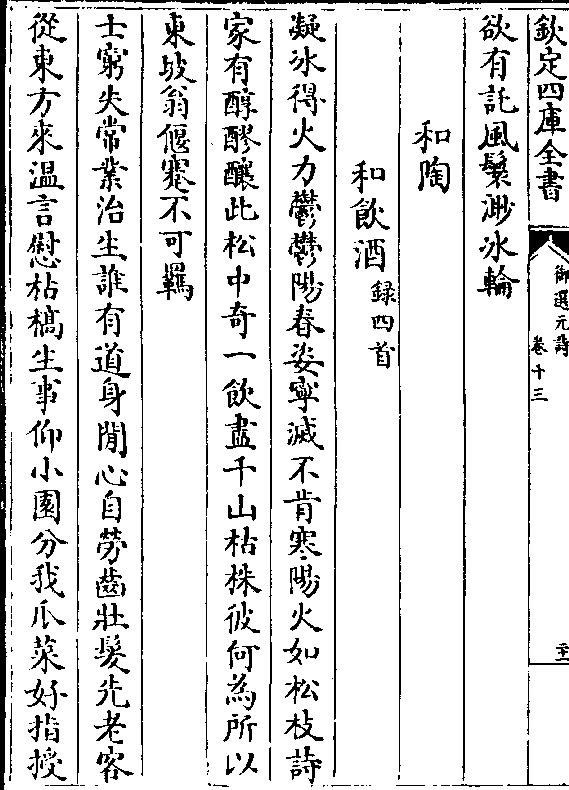 欽定四庫全書
御選元詩
卷十三
欲有託風鬟渺冰輪
和陶
和飲酒錄四首
凝冰得火力鬱鬱陽春姿寧滅不肯寒陽火如松枝詩
家有醇醪釀此松中奇一飲盡千山枯株彼何為所以
東坡翁偃蹇不可羈
士窮失常業治生誰有道身閒心自勞齒壯髮先老客
從東方來溫言慰枯槁生事仰小園分我瓜菜好指授